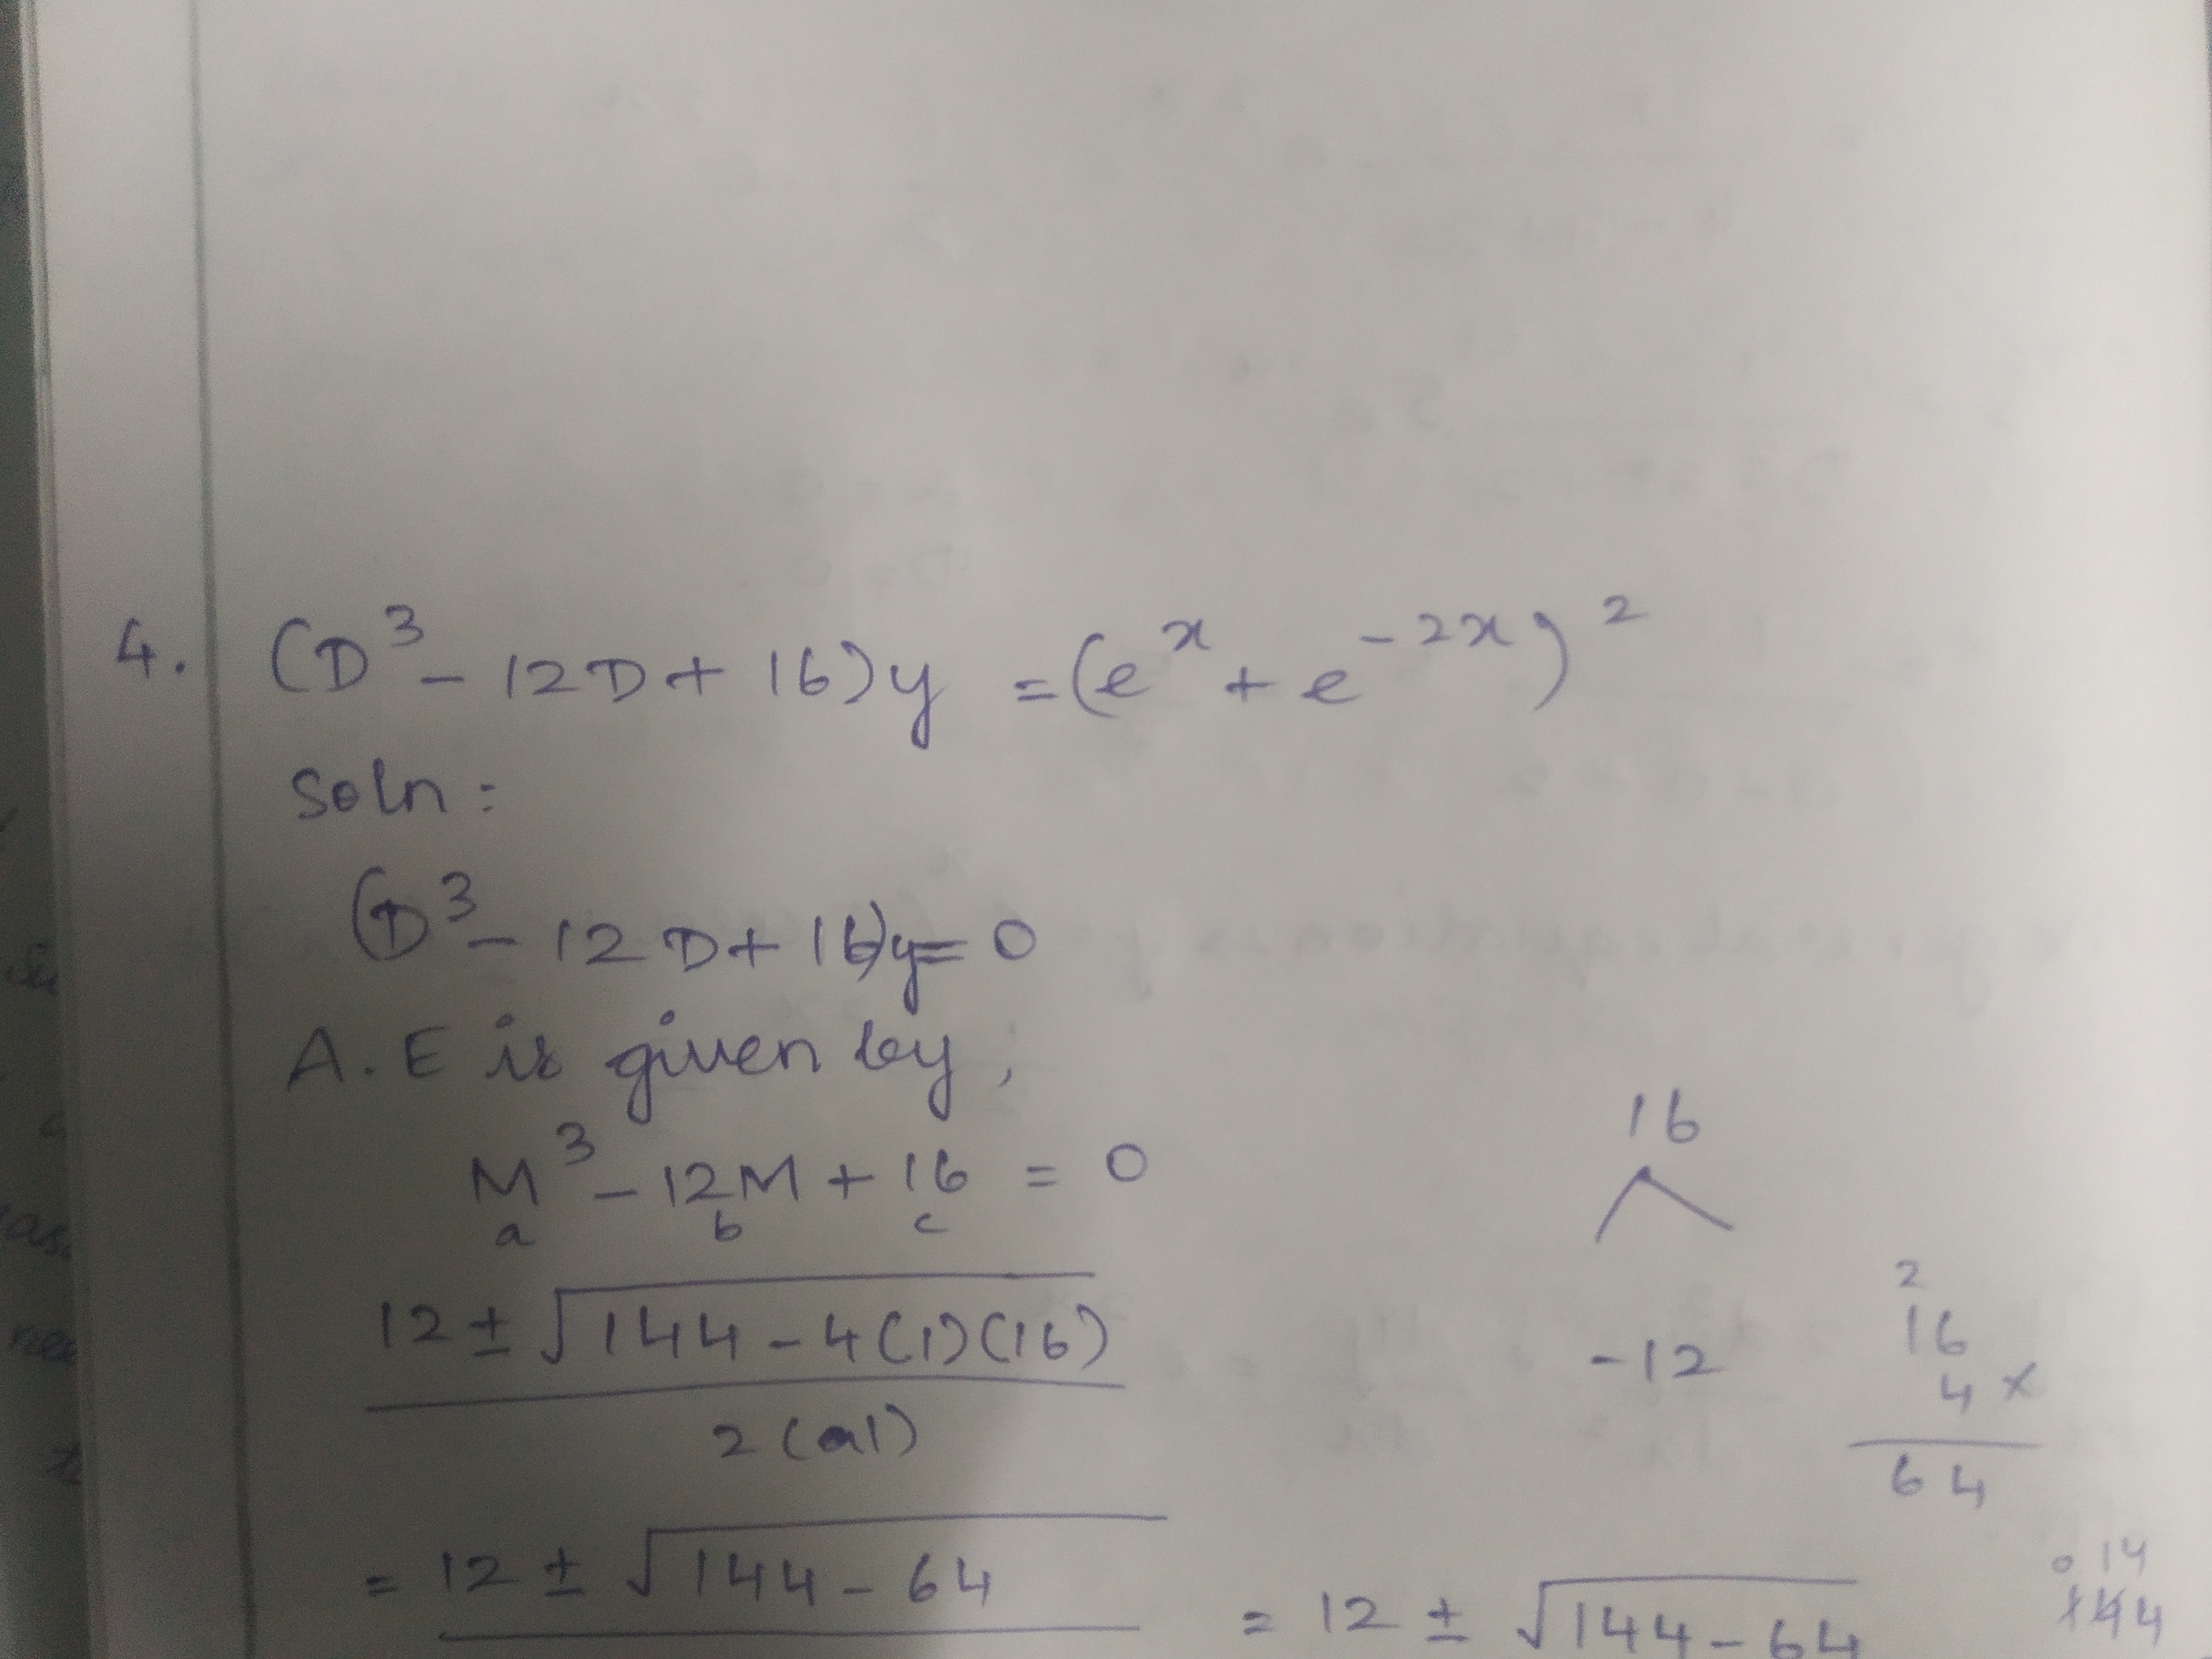 4. (D³ - 12D + 16)y = (eˣ + e⁻²ˣ)²
Soln:
(D³ - 12D + 16)y = 0
A.E is given by,
M³ - 12M + 16 = 0
a b c
16
12 ± √144 - 4(1)(16)
2(1)
-12
2
16
4 ×
64
= 12 ± √144 - 64
= 12 ± √144 - 64
0 14
144